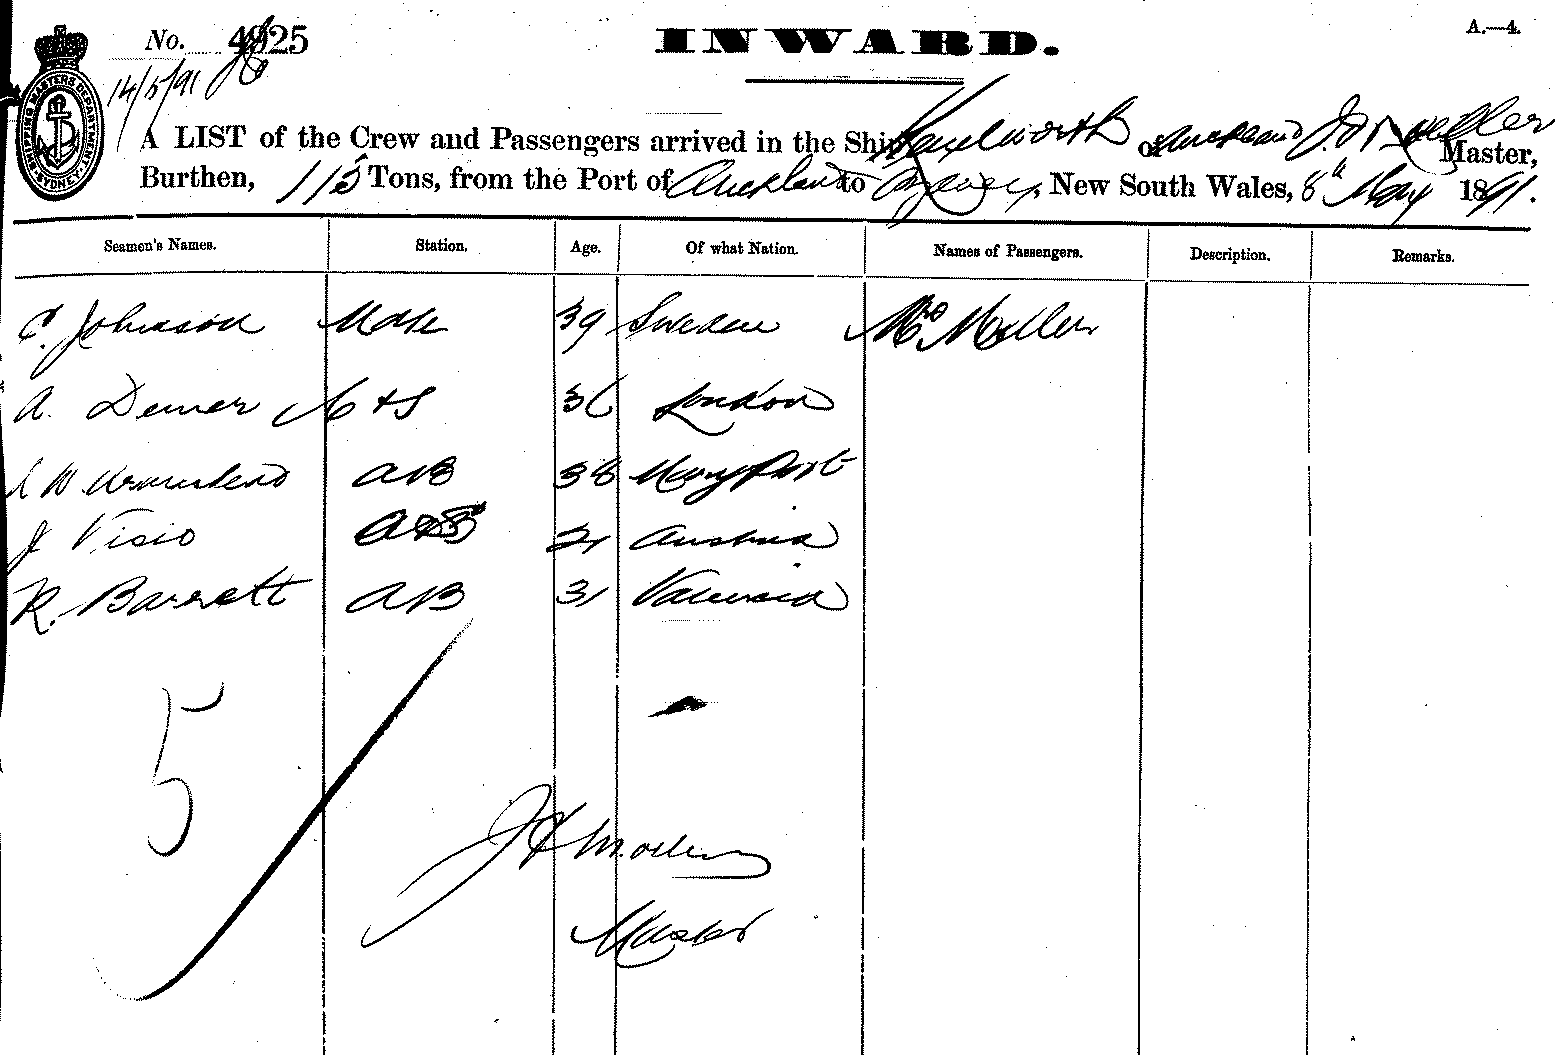 No. 4925
INWARD.
A.—4.
14/5/91
SHIPPING MASTERS DEPARTMENT SYDNEY
A LIST of the Crew and Passengers arrived in the Ship Kenilworth of Auckland J. H Moeller Master,
Burthen, 115 Tons, from the Port of Auckland to Sydney, New South Wales, 8th May 1891.
Seamen's Names. Station. Age. Of what Nation. Names of Passengers. Description. Remarks.
C. Johnson Mate 39 Sweden Mrs Moller
A. Denner C & S 36 London
AB 38 Maryport
J Visio 21 Austria
R. Barrett AB 31 Valencia
5
J H Moller
Master